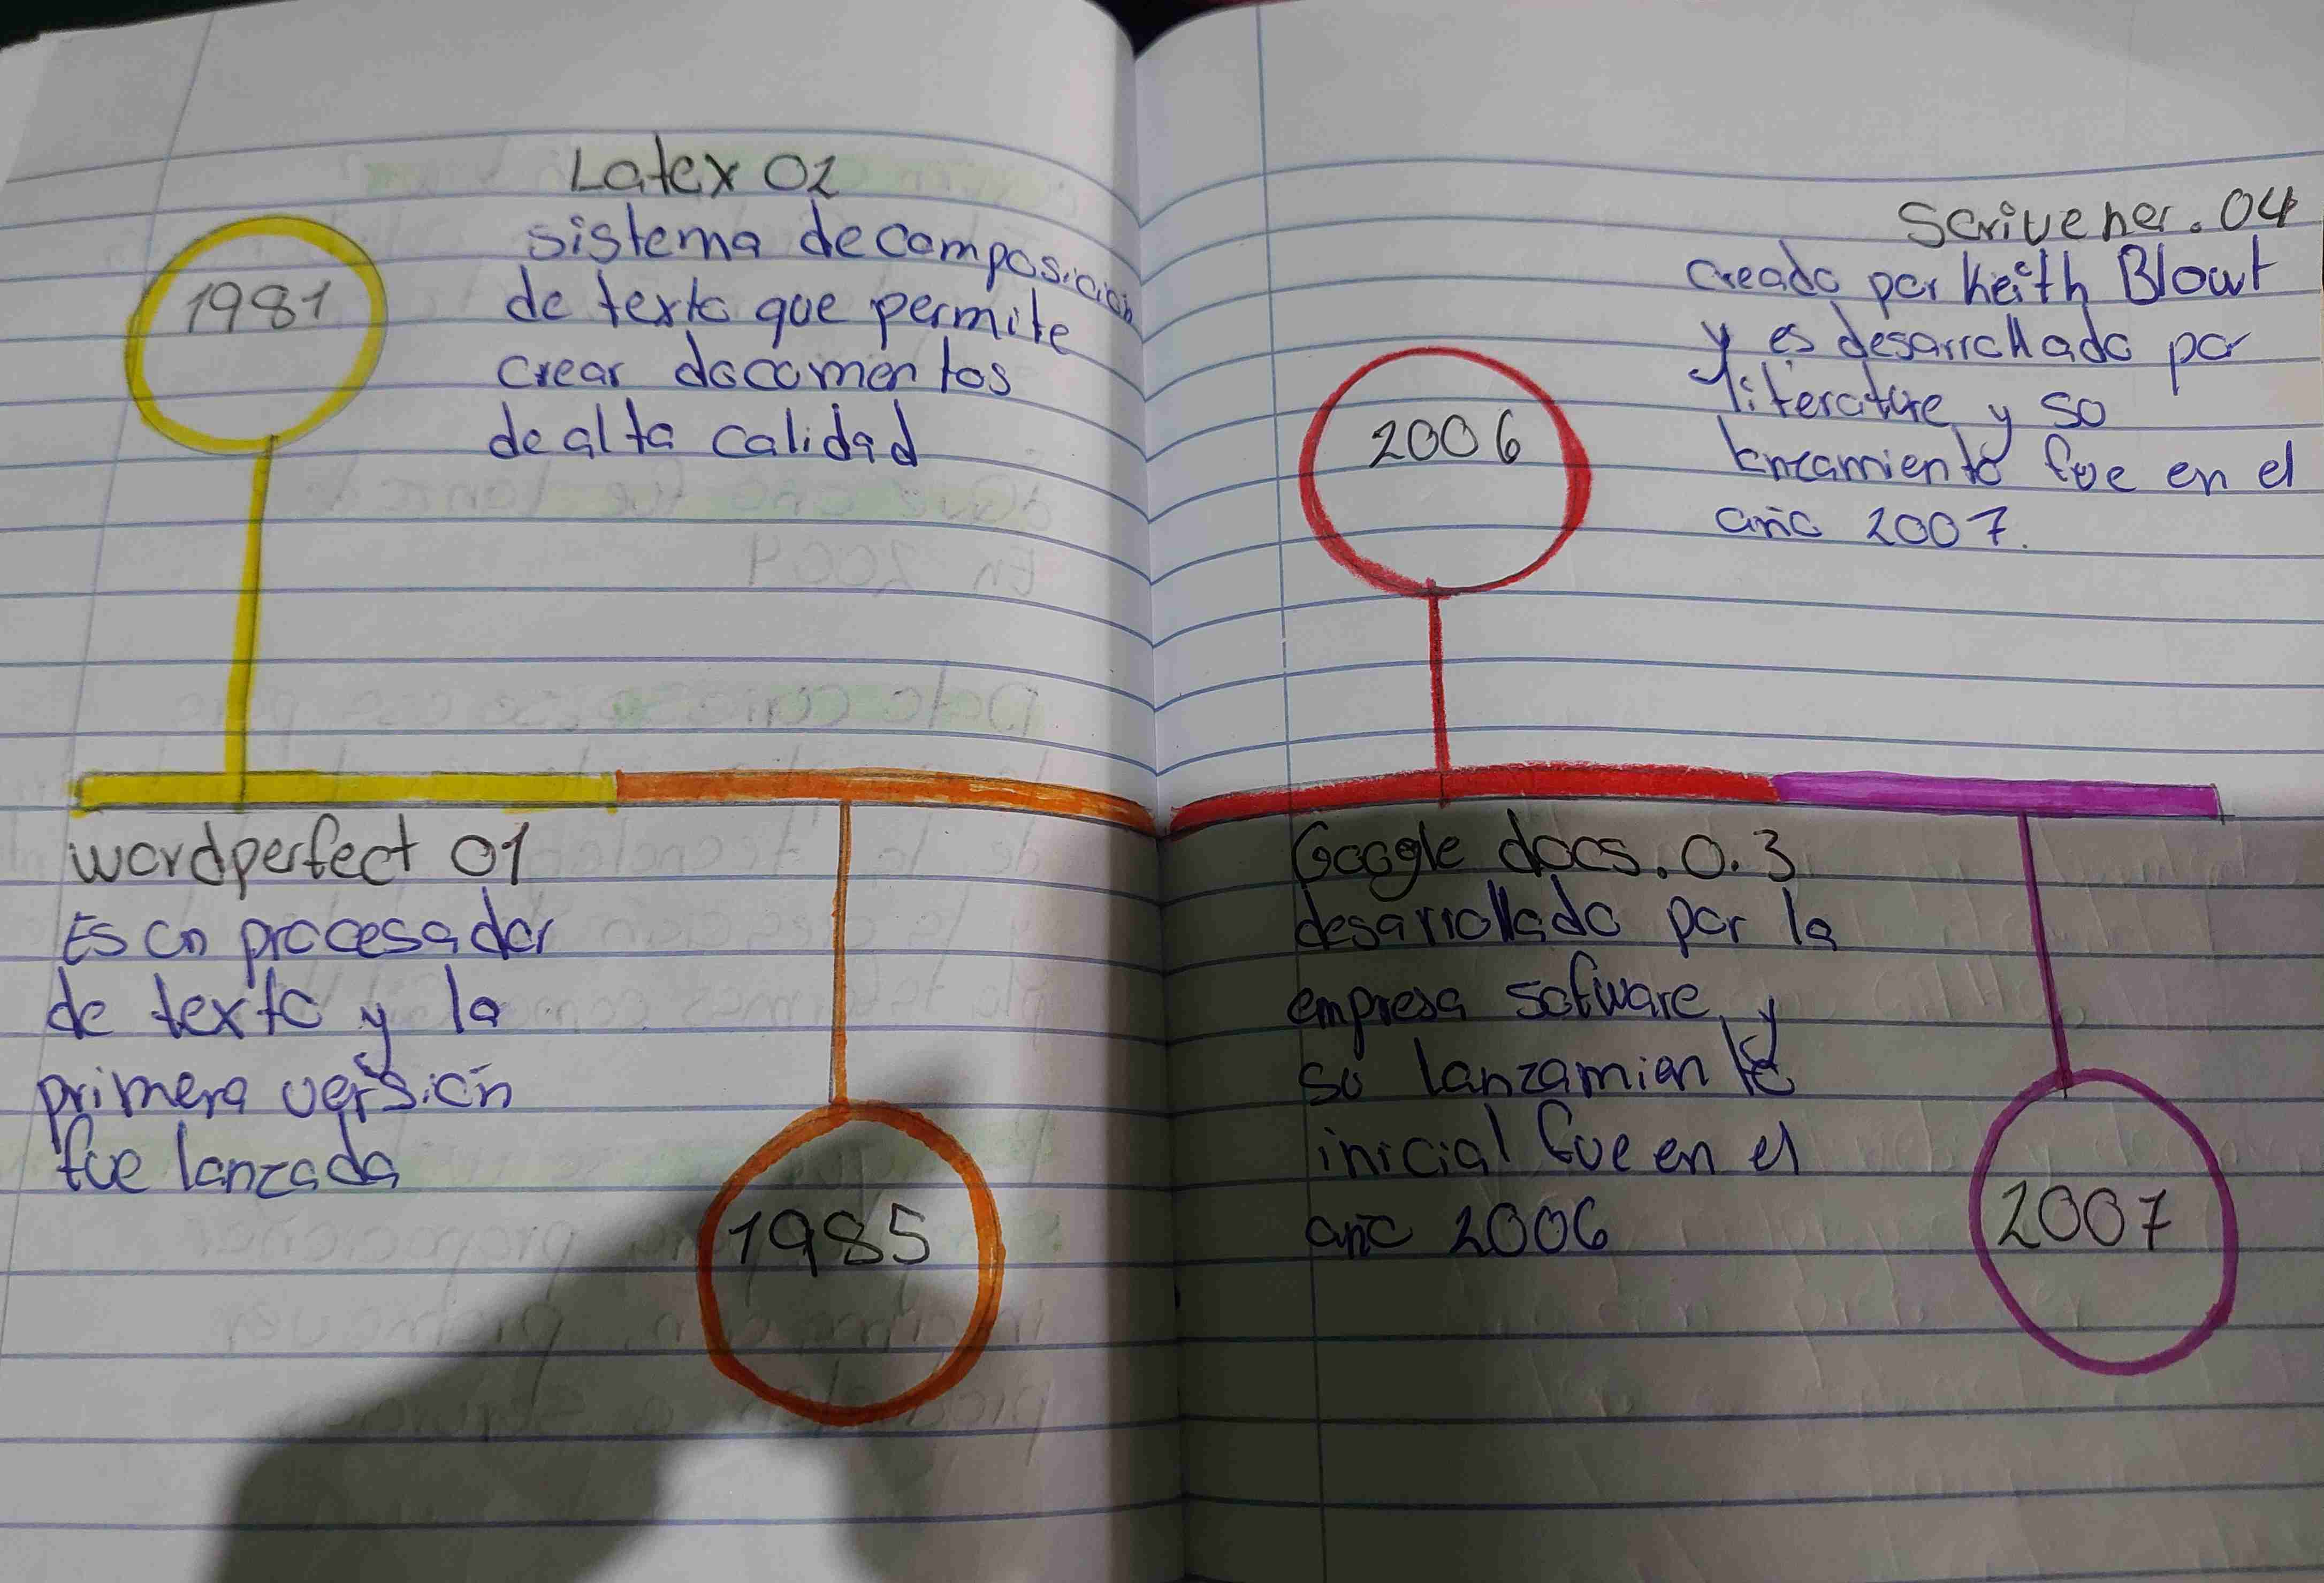 1981
Latex 02
sistema de composicion
de texto que permite
crear documentos
de alta calidad
wordperfect 01
Es un procesador
de texto y la
primera versión
fue lanzada
1985
2006
Scrivener. 04
creado por Keith Blowt
y es desarrollado por
literature y su
lanzamiento fue en el
año 2007.
Google docs. 0.3
desarrollado por la
empresa sofware y
su lanzamiento
inicial fue en el
año 2006
2007